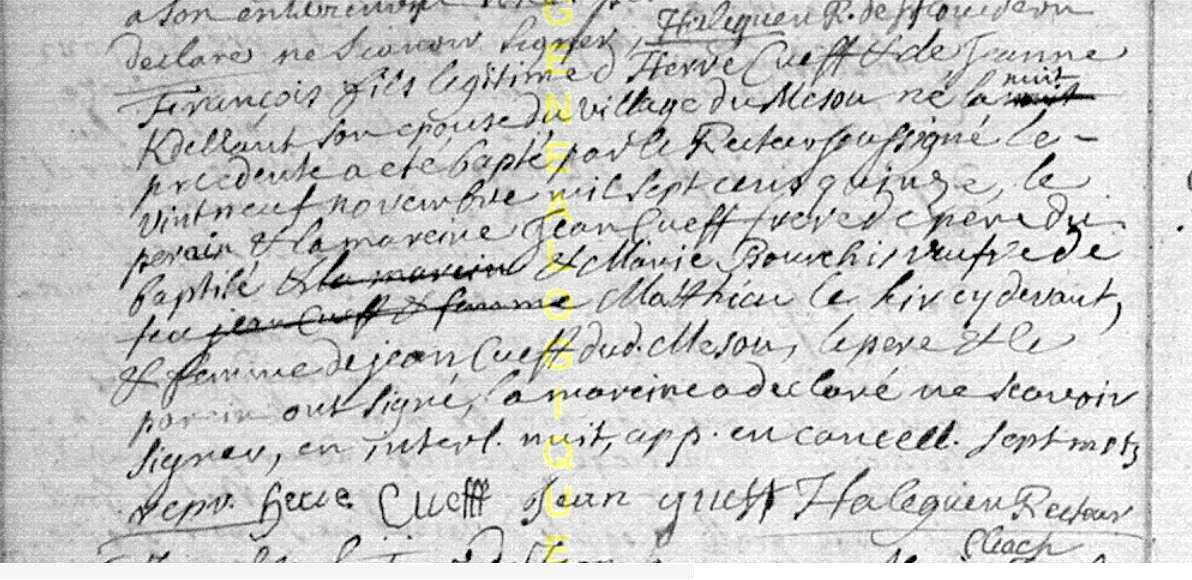 a son enterrement
declaré ne scavoir signer, Haleguen R. de Ploudern
François fils legitime d Herve Cueff & de Jeanne
Kdellant son epouse du village du Meson né la nuit
precedente a eté bapté par le Recteur soussigné le -
vintneuf novembre mil sept cens quinze, le
parain & la mareine Jean Cueff frere de pere du
baptisé & la marein & Marie Bourchis veufve de
feu jean Cueff & femme Matthieu le hir cydevant,
& femme de jean Cueff dud. Meson, le pere & le
parein ont signé, la mareine a declaré ne scavoir
signer, en interl. nuit, app. en cancell. sept mots
repr. herve Cuefff Jean queff Haleguen Recteur
GENEALOGIQUE